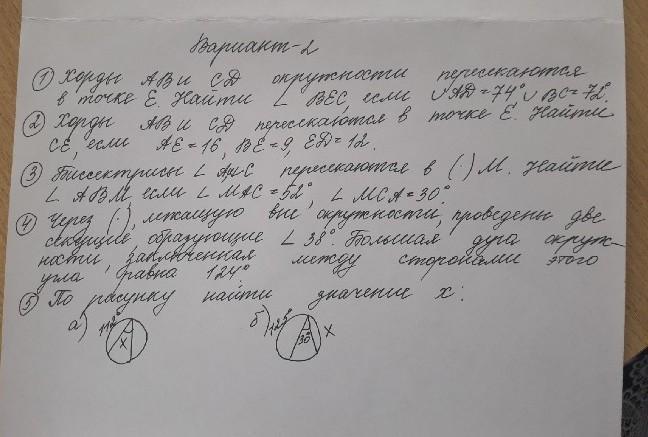 Вариант-2
① Хорды АВ и СD окружности пересекаются
в точке Е. Найти ∠ ВЕС, если ∪AD=74° ∪ВС=72°.
② Хорды АВ и СD пересекаются в точке Е. Найти
СЕ, если АЕ=16, ВЕ=9, ЕD=12.
③ Биссектрисы ∠ А и С пересекаются в (·) М. Найти
∠ АВМ если ∠ МАС=52°, ∠ МСА=30°.
④ Через (·), лежащую вне окружности, проведены две
секущие, образующие ∠ 38°. Большая дуга окруж-
ности, заключенная между сторонами этого
угла равна 124°
⑤ По рисунку найти значение х:
а) 112° х
б) 125° 30° х